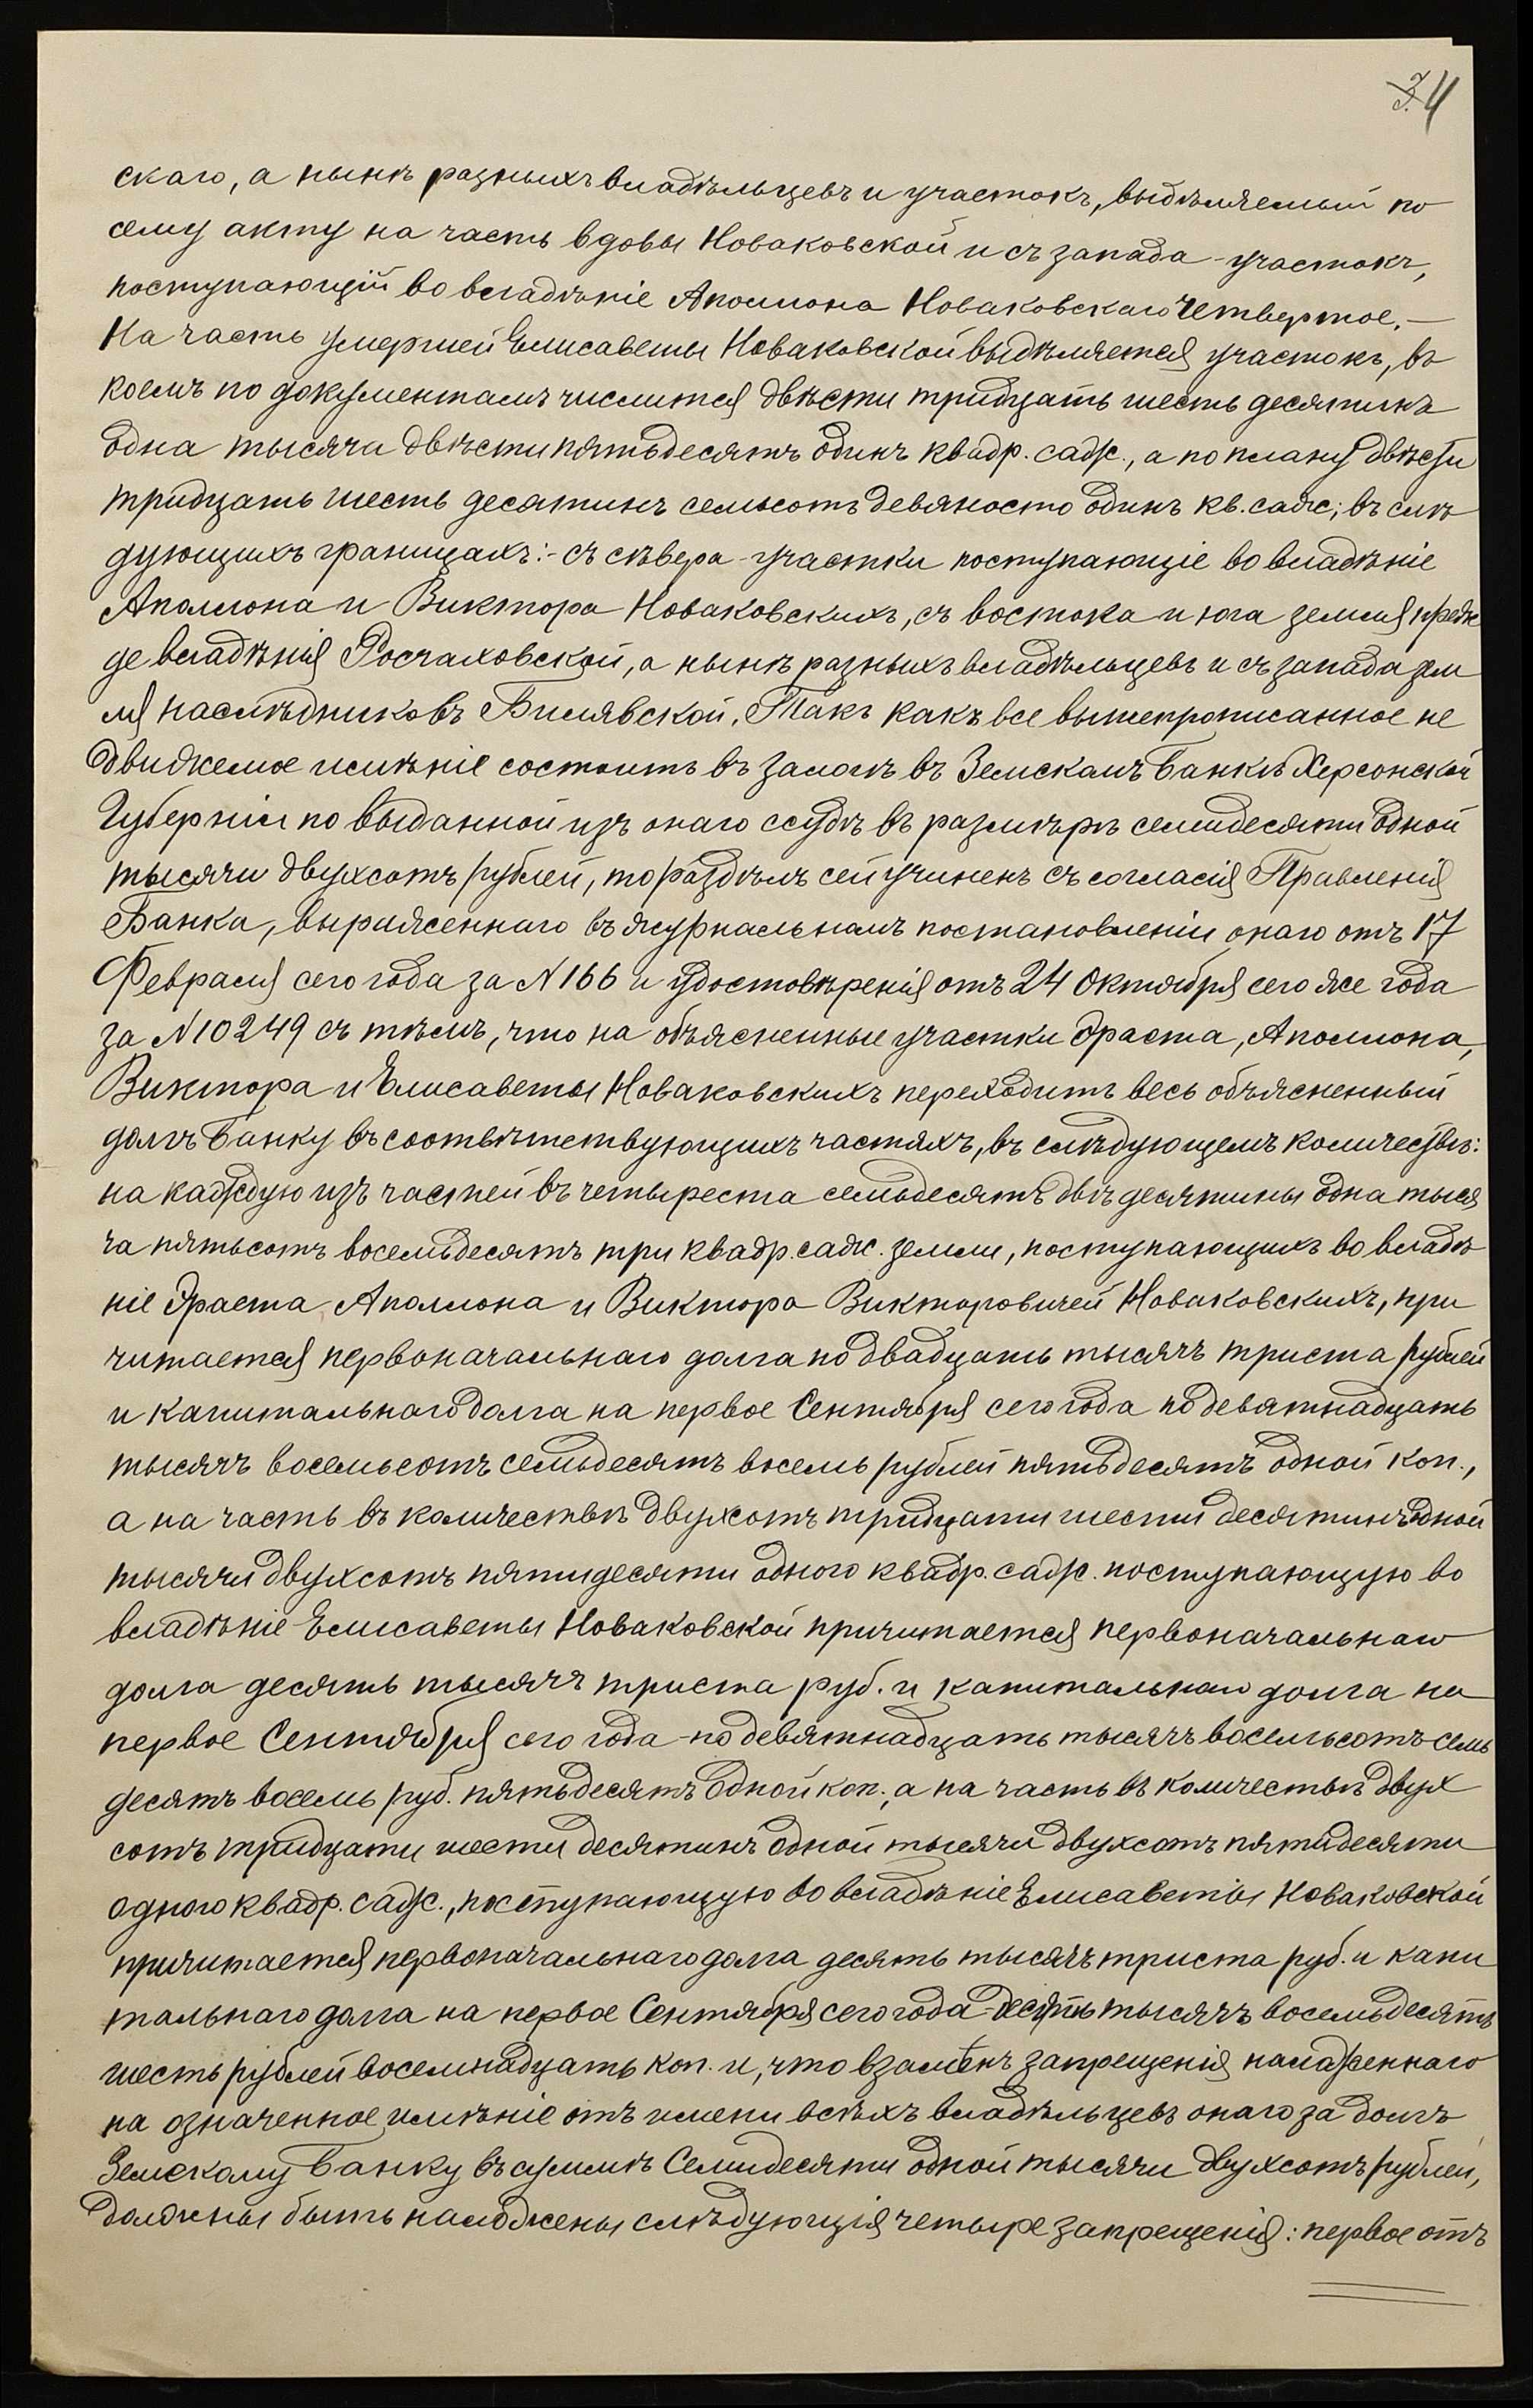 3. 4
скаго, а нынѣ разныхъ владѣльцевъ и участокъ, выдѣляемый по
сему акту на часть вдовы Новаковской и съ запада - участокъ,
поступающій во владѣніе Аполлона Новаковскаго Четвертое. —
На часть умершей Елисаветы Новаковской выдѣляется участокъ, въ
коемъ по документамъ числится двѣсти тридцать шесть десятинъ
одна тысяча двѣсти пятьдесятъ одинъ квадр. саж., а по плану двѣсти
тридцать шесть десятинъ семьсотъ девяносто одинъ кв. саж; въ слѣ
дующихъ границахъ:- съ сѣвера - участки поступающіе во владѣніе
Аполлона и Виктора Новаковскихъ, съ востока и юга земля преж
де владѣнія Росчаховской, а нынѣ разныхъ владѣльцевъ и съ запада зем
ля наслѣдниковъ Билявской. Такъ какъ все вышепрописанное не
движемое имѣніе состоитъ въ залогѣ въ Земскомъ Банкѣ Херсонской
Губерніи по выданной изъ онаго ссудѣ въ размѣрѣ семидесяти одной
тысячи двухсотъ рублей, то раздѣлъ сей учиненъ съ согласія Правленія
Банка, выраженнаго въ журнальномъ постановленіи онаго отъ 17
Февраля сего года за N 166 и удостовѣренія отъ 24 Октября сего же года
за N 10249 съ тѣмъ, что на объясненные участки Эраста, Аполлона,
Виктора и Елисаветы Новаковскихъ переходитъ весь объясненный
долгъ Банку въ соотвѣтствующихъ частяхъ, въ слѣдующемъ количествѣ:
на каждую изъ частей въ четыреста семьдесятъ двѣ десятины одна тыся
ча пятьсотъ восемьдесятъ три квадр. саж. земли, поступающихъ во владѣ
ніе Эраста, Аполлона и Виктора Викторовичей Новаковскихъ, при
читается первоначальнаго долга по двадцать тысячъ триста рублей
и капитальнаго долга на первое Сентября сего года по девятнадцать
тысячъ восемьсотъ семьдесятъ восемь рублей пятьдесятъ одной коп.,
а на часть въ количествѣ двухсотъ тридцати шести десятинъ одной
тысячи двухсотъ пятидесяти одного квадр. саж. поступающую во
владѣніе Елисаветы Новаковской причитается первоначальнаго
долга десять тысячъ триста руб. и капитальнаго долга на
первое Сентября сего года - по девятнадцать тысячъ восемьсотъ семь
десятъ восемь руб. пятьдесятъ одной коп., а на часть въ количествѣ двух
сотъ тридцати шести десятинъ одной тысячи двухсотъ пятидесяти
одного квадр. саж., поступающую во владѣніе Елисаветы Новаковской
причитается первоначальнаго долга десять тысячъ триста руб. и капи
тальнаго долга на первое Сентября сего года - десять тысячъ восемьдесятъ
шесть рублей восемнадцать коп. и, что взамѣнъ запрещенія наложеннаго
на означенное имѣніе отъ имени всѣхъ владѣльцевъ онаго за долгъ
Земскому Банку въ суммѣ Семидесяти одной тысячи двухсотъ рублей,
должны быть наложены слѣдующія четыре запрещенія: первое отъ